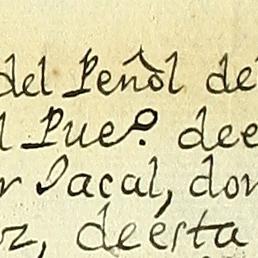 del Peñol de
l Pueo. dee
r Jacal, don
oz, deesta